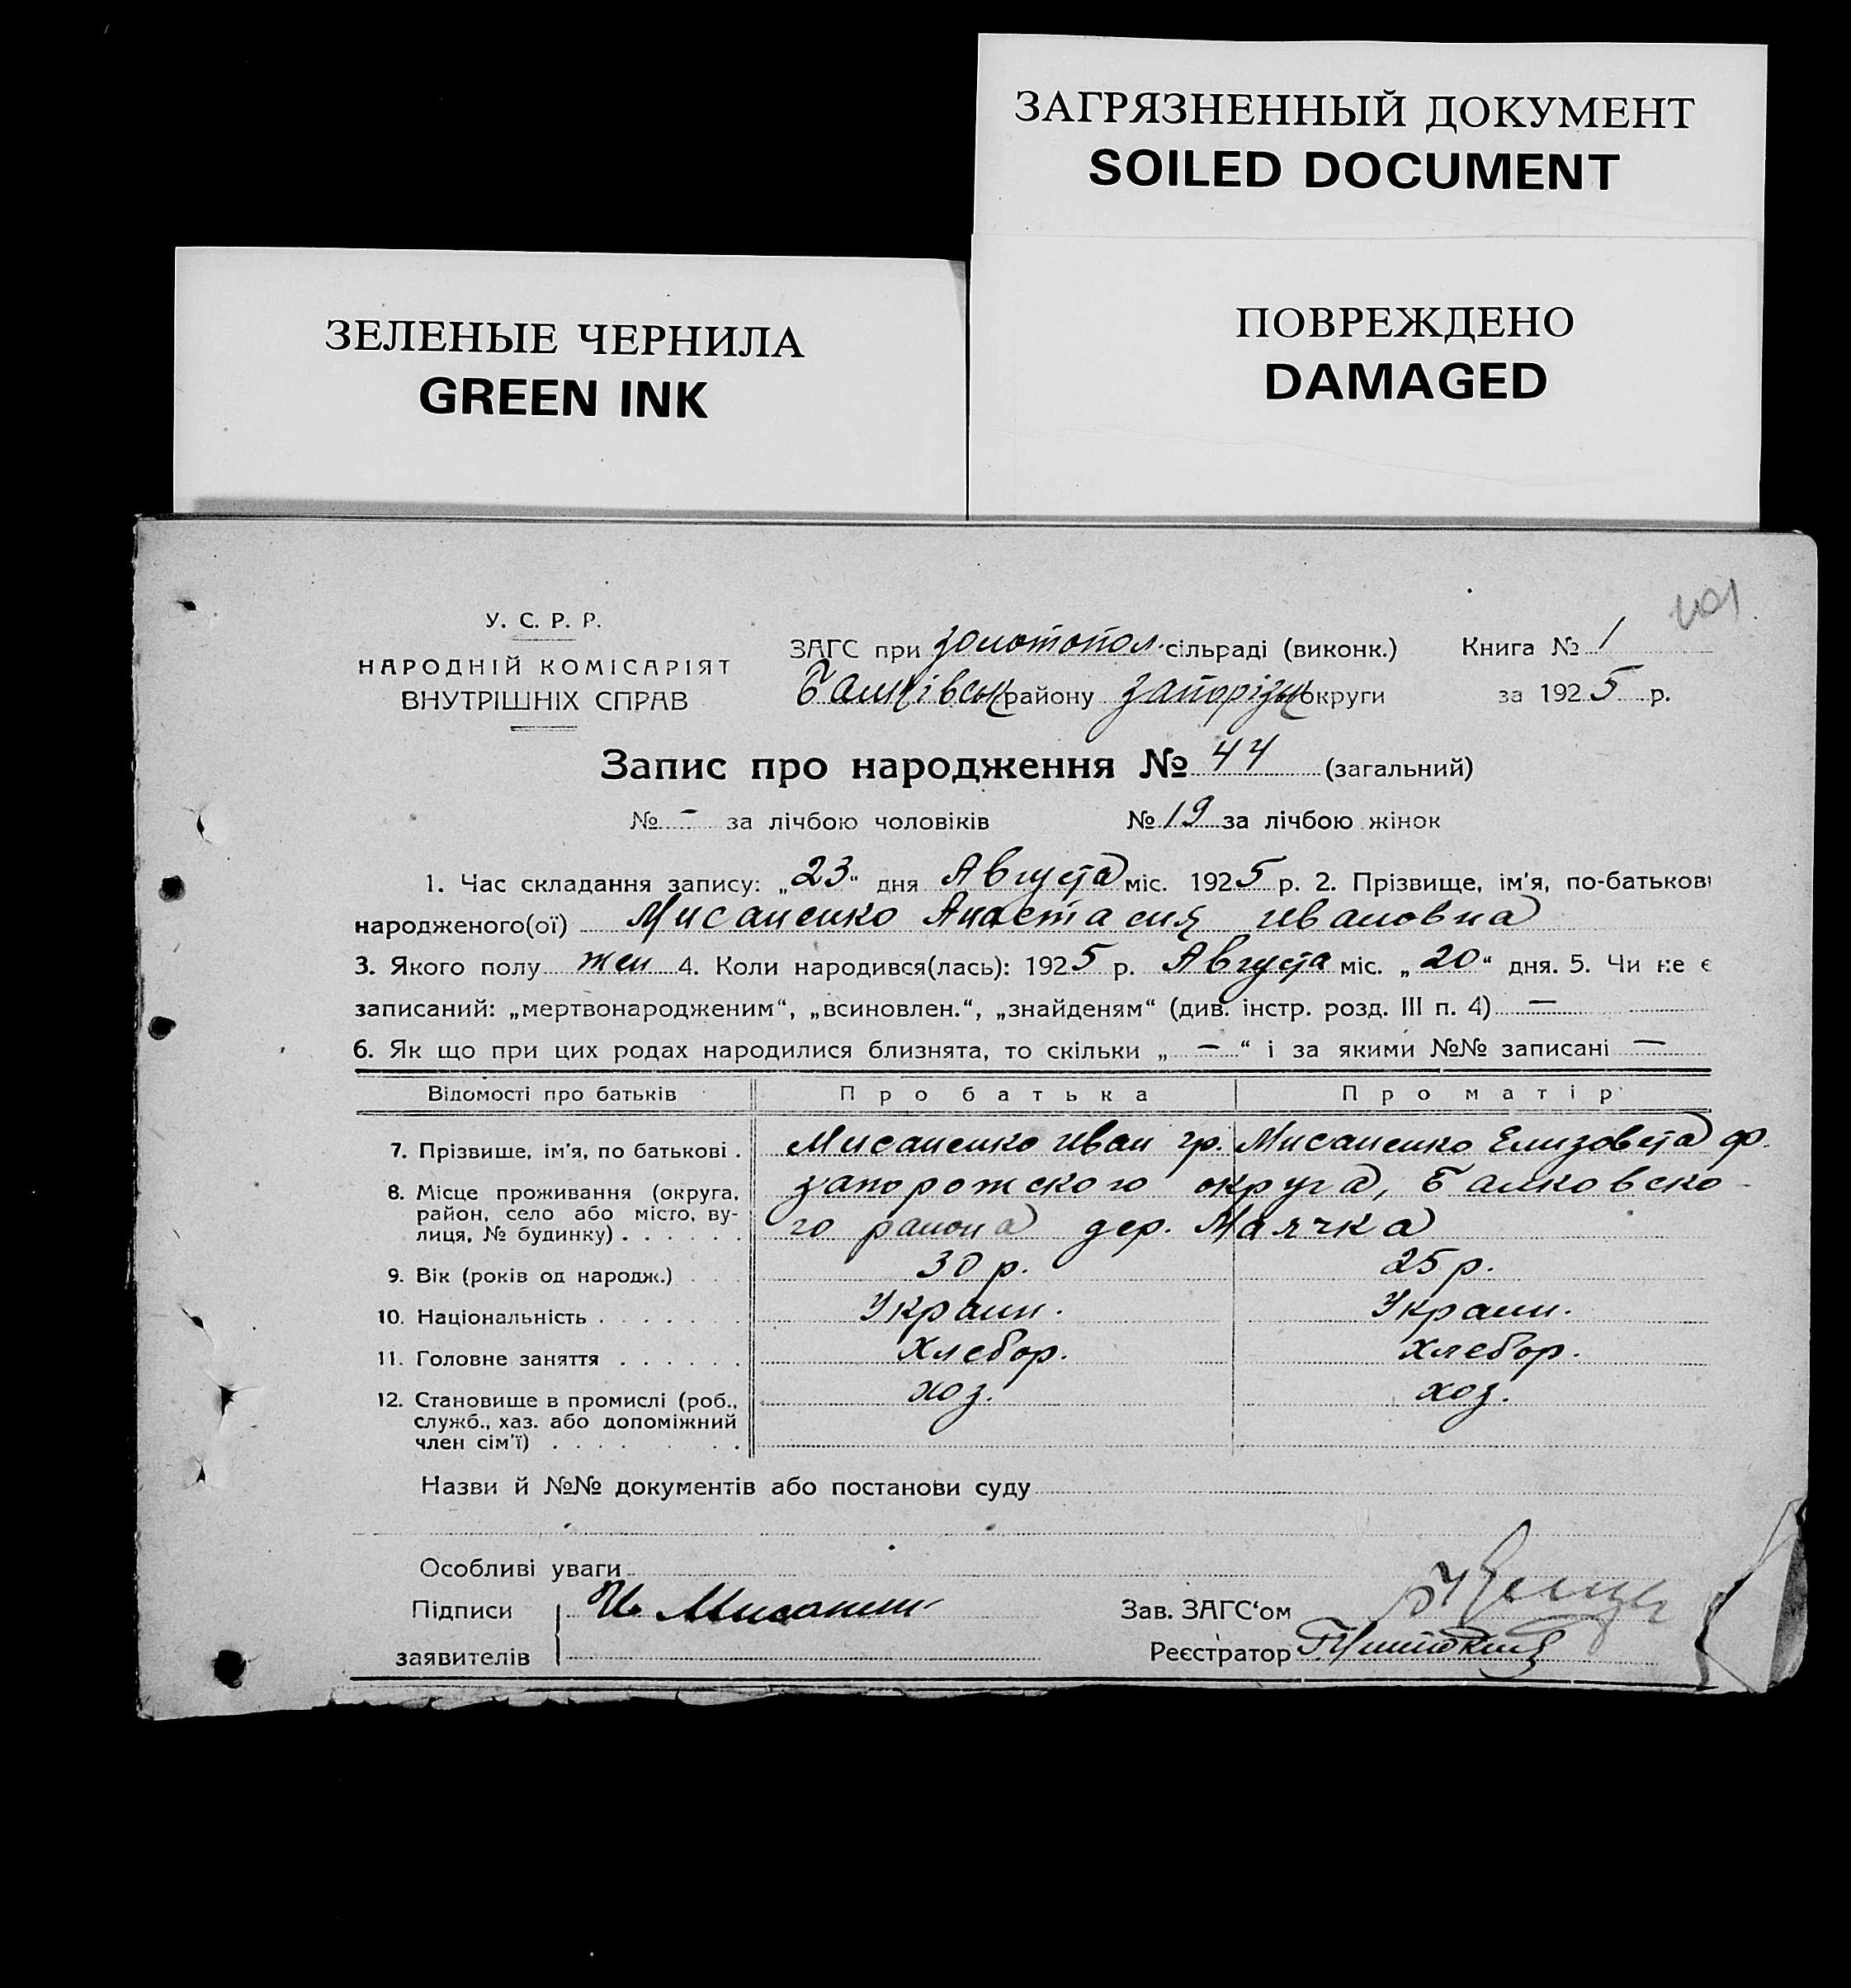 ЗАГРЯЗНЕННЫЙ ДОКУМЕНТ
SOILED DOCUMENT
ЗЕЛЕНЫЕ ЧЕРНИЛА
GREEN INK
ПОВРЕЖДЕНО
DAMAGED
У. С. Р. Р.
НАРОДНІЙ КОМІСАРІЯТ
ВНУТРІШНІХ СПРАВ
ЗАГС при Золотопол. сільраді (виконк.) Книга № 1
Балківськ району Запорізьк округи за 1925 р.
Запис про народження № 44 (загальний)
№ - за лічбою чоловіків № 19 за лічбою жінок
1. Час складання запису: „23" дня Августа міс. 1925 р. 2. Прізвище, ім'я, по-батькові
народженого(ої) Мисаненко Анастасия Ивановна
3. Якого полу жен 4. Коли народився(лась): 1925 р. Августа міс. „20" дня. 5. Чи не є
записаний: „мертвонародженим", „всиновлен.", „знайденям" (див. інстр. розд. III п. 4) —
6. Як що при цих родах народилися близнята, то скільки „ — " і за якими №№ записані —
Відомості про батьків Про батька Про матір
7. Прізвище, ім'я, по батькові . Мисаненко Иван гр. Мисаненко Елизовета ф.
8. Місце проживання (округа, район, село або місто, вулиця, № будинку) . . . . . . Запорожского округа, Балковско-
го района дер. Маячка
9. Вік (років од народж.) 30 р. 25 р.
10. Національність . . . . . . . Украин. Украин.
11. Головне заняття . . . . . . Хлебор. Хлебор.
12. Становище в промислі (роб., хоз. хоз.
служб., хаз. або допоміжний
член сім'ї) . . . . . . .
Назви й №№ документів або постанови суду
Особливі уваги
Підписи Зав. ЗАГС'ом
заявителів Реєстратор